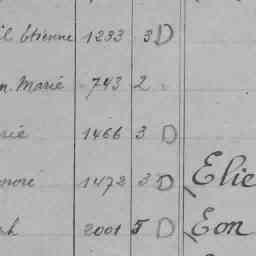 Etienne 1233 3 D
Marie 743 2
1466 3 D
1472 3 D Elie
2001 5 D Eon